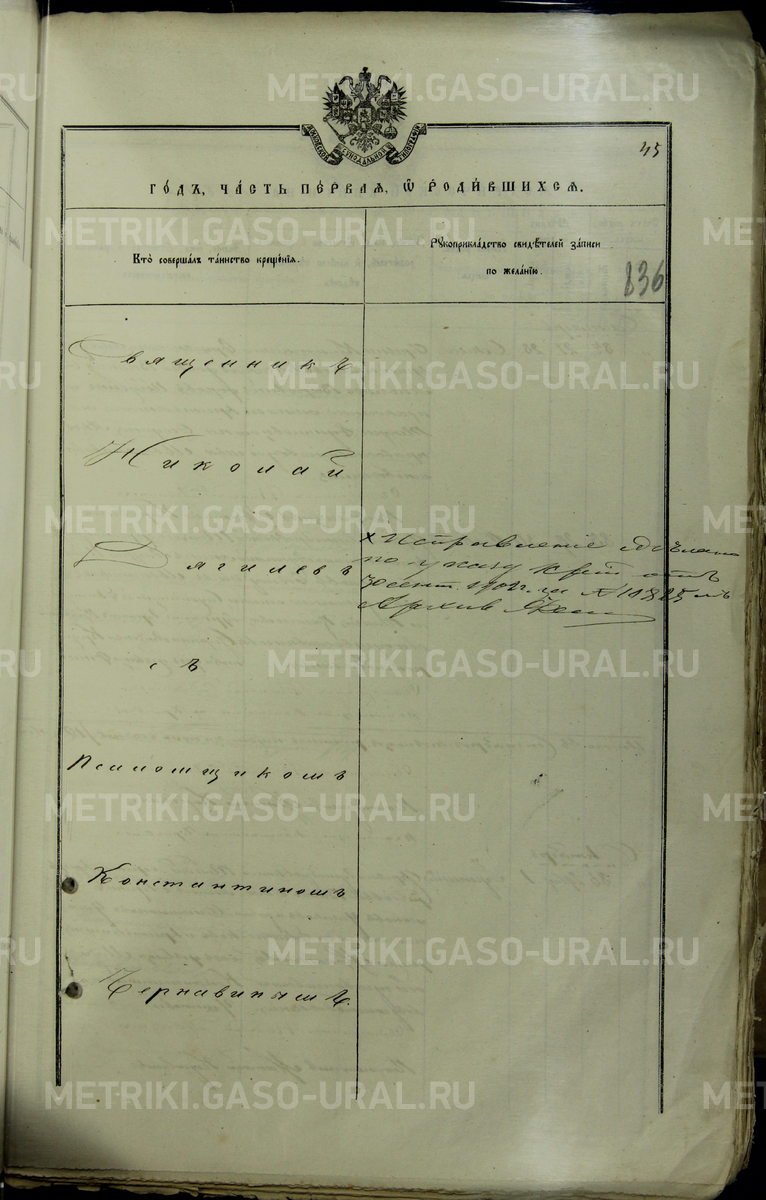 METRIKI.GASO-URAL.RU
45
МОСКОВСКОЙ СѴНОДАЛЬНОЙ ТИПОГРАФІИ
ГО́ДЪ, ЧА́СТЬ ПЕ́РВАЯ, Ѡ҆ РОДИ́ВШИХСЯ.
Кто̀ соверша́лъ та́инство креще́нїѧ.
Рꙋкоприкла́дство свидѣ́телей за́писи
по жела́нїю.
836
Священникъ
Николай
Дягилевъ
съ
Псаломщикомъ
Константиномъ
Чернавинымъ.
х Исправленіе сдѣлано
по указу отъ
30 сент. 190 г. за № 10825
Архив
METRIKI.GASO-URAL.RU